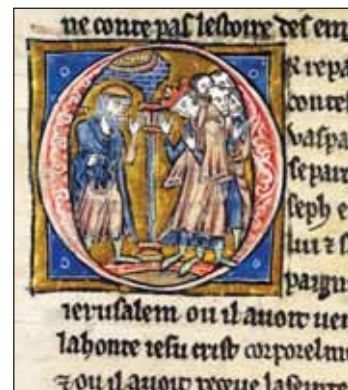 ne conte pas lestoire des em
R repa
contes
vaspa
sepan
seph e
lui ⁊ s
pargn
ierusalem ou il auoit uen
lahonte iesu crist corporelm
⁊ ou il auoit receue la